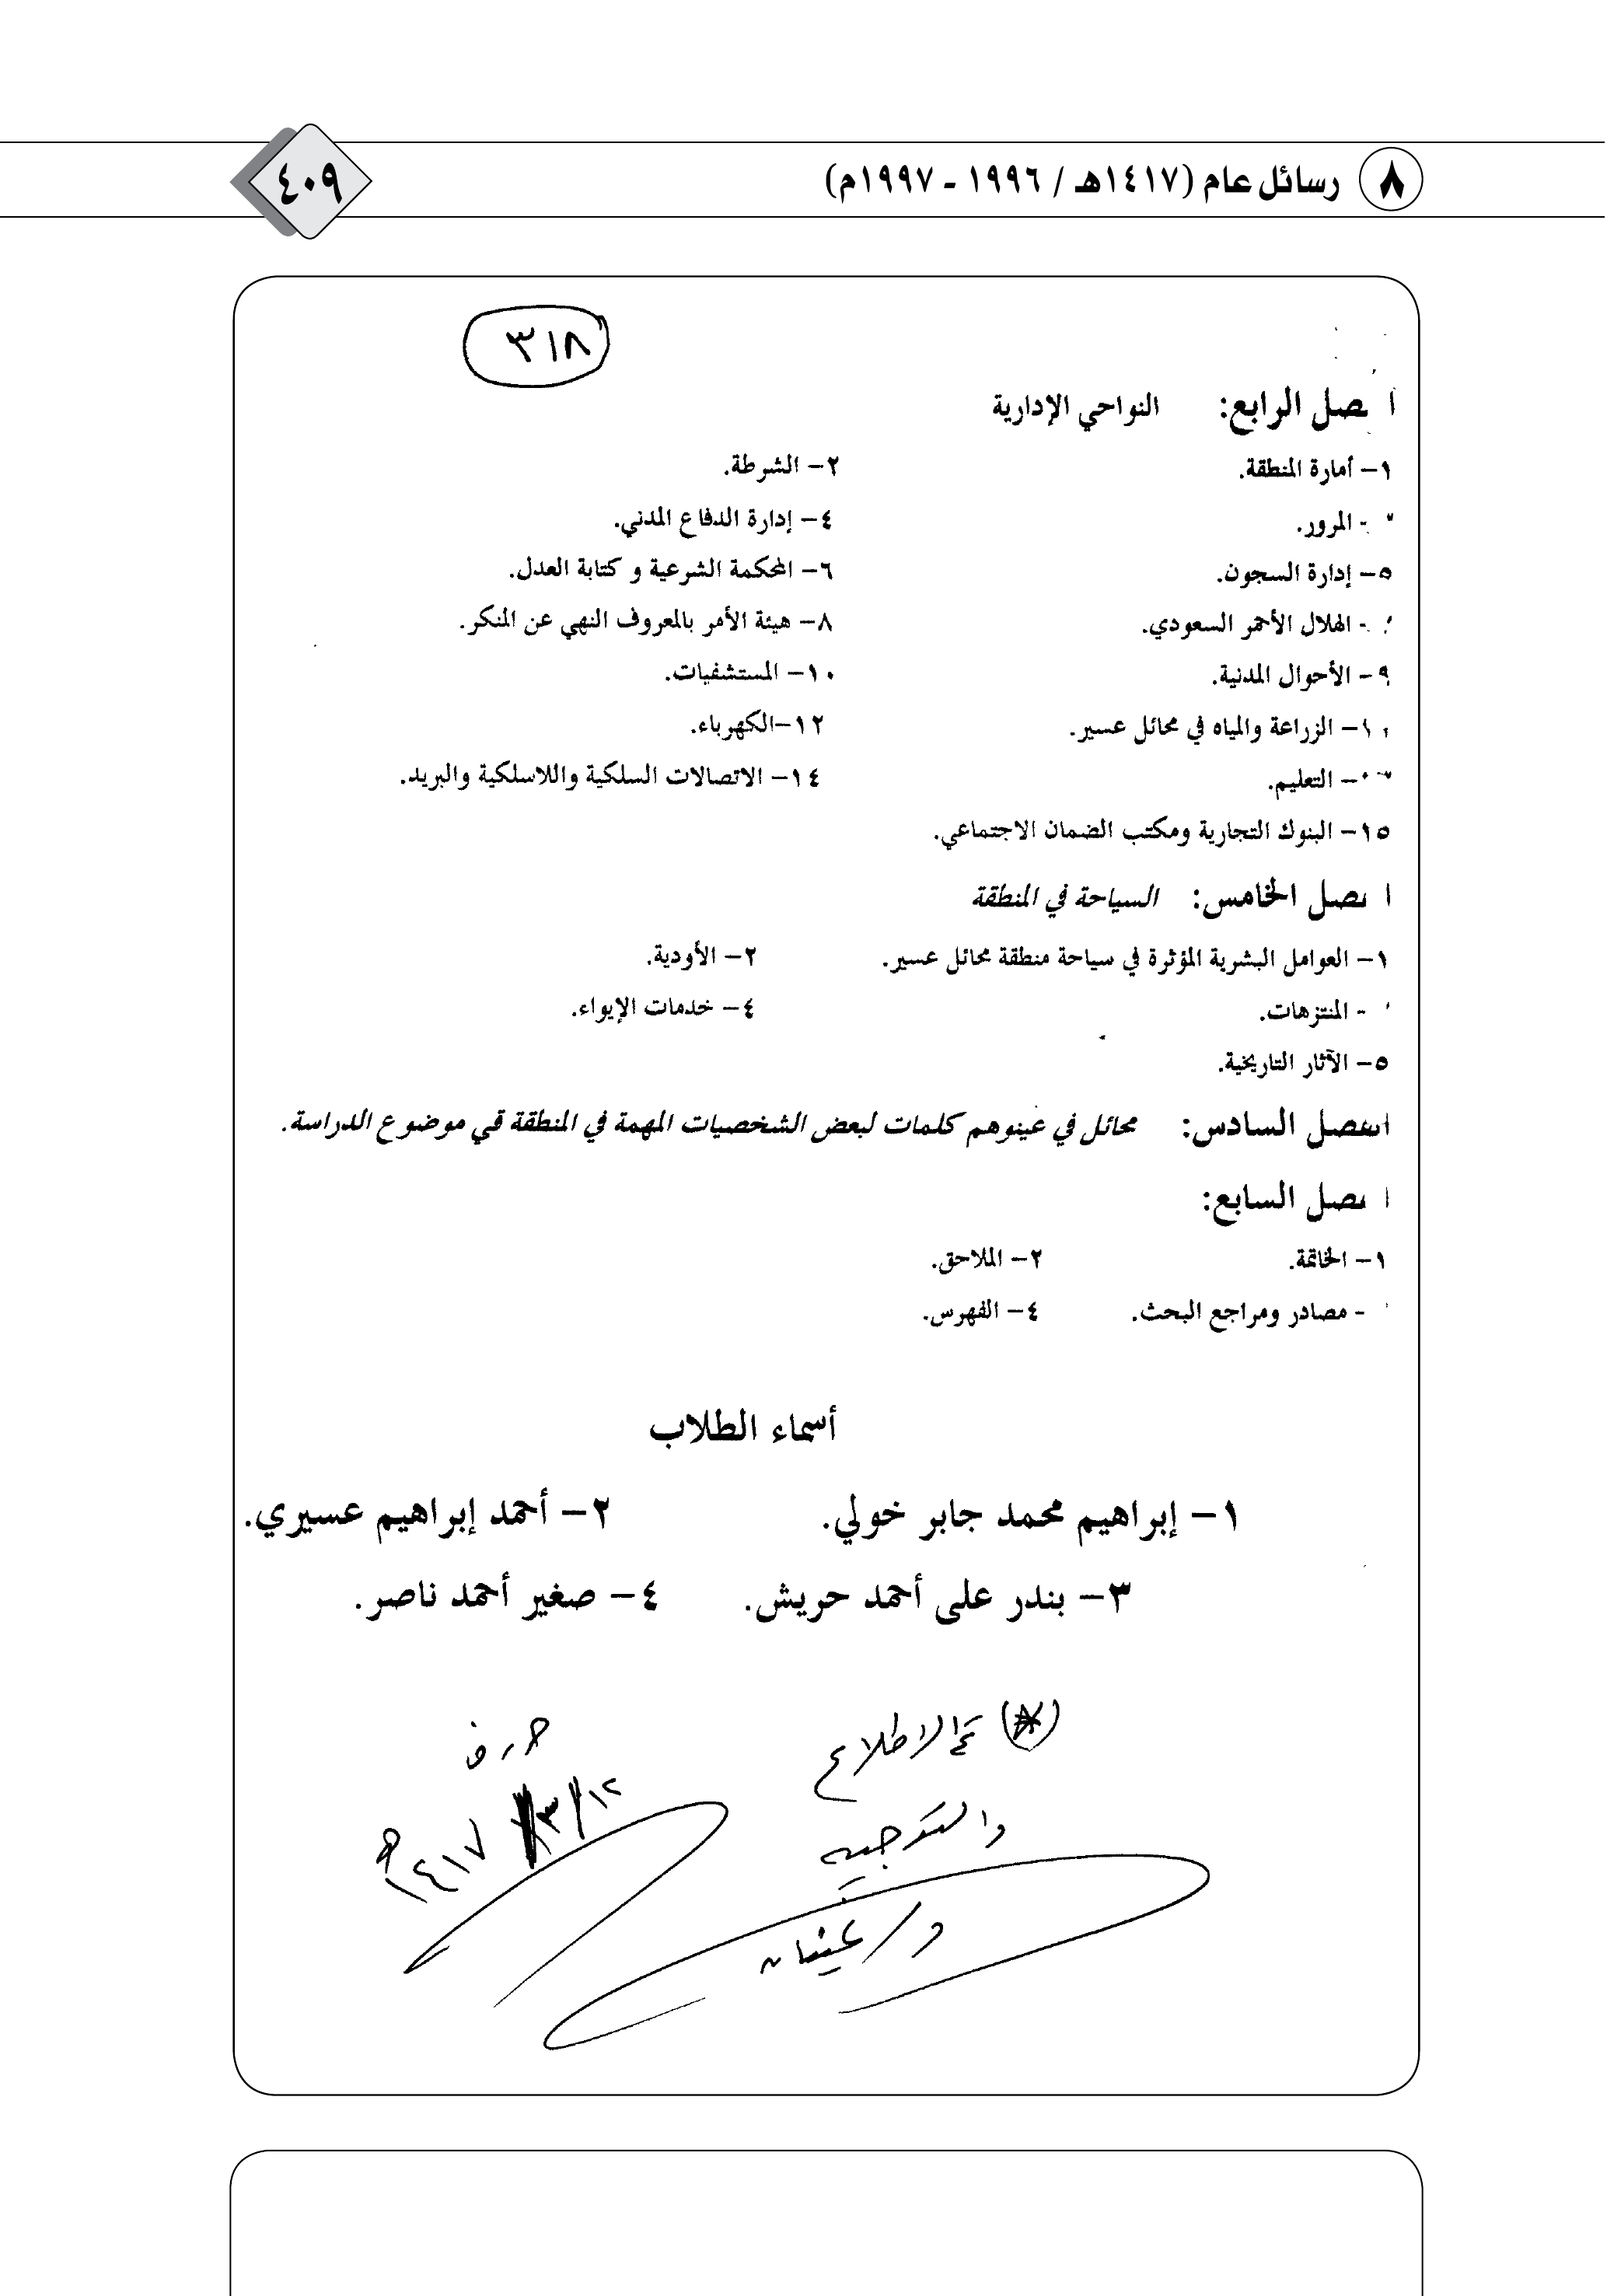 ٨ رسائل عام (١٤١٧هـ / ١٩٩٦ - ١٩٩٧م) ٤٠٩
٣١٨
الفصل الرابع: النواحي الإدارية
١- أمارة المنطقة. ٢- الشرطة.
- المرور. ٤- إدارة الدفاع المدني.
٥- إدارة السجون. ٦- المحكمة الشرعية و كتابة العدل.
- الهلال الأحمر السعودي. ٨- هيئة الأمر بالمعروف النهي عن المنكر.
٩- الأحوال المدنية. ١٠- المستشفيات.
١١- الزراعة والمياه في محائل عسير. ١٢-الكهرباء.
- التعليم. ١٤- الاتصالات السلكية واللاسلكية والبريد.
١٥- البنوك التجارية ومكتب الضمان الاجتماعي.
الفصل الخامس: السياحة في المنطقة
١- العوامل البشرية المؤثرة في سياحة منطقة محائل عسير. ٢- الأودية.
- المنتزهات. ٤- خدمات الإيواء.
٥- الآثار التاريخية.
الفصل السادس: محائل في عينوهم كلمات لبعض الشخصيات المهمة في المنطقة قي موضوع الدراسة.
الفصل السابع:
١- الخاتمة. ٢- الملاحق.
- مصادر ومراجع البحث. ٤- الفهرس.
أسماء الطلاب
١- إبراهيم محمد جابر خولي. ٢- أحمد إبراهيم عسيري.
٣- بندر على أحمد حريش. ٤- صغير أحمد ناصر.
(*) تم الاطلاع
والتوجيه
د/ غيثان
١٢/٣/١٤١٧هـ